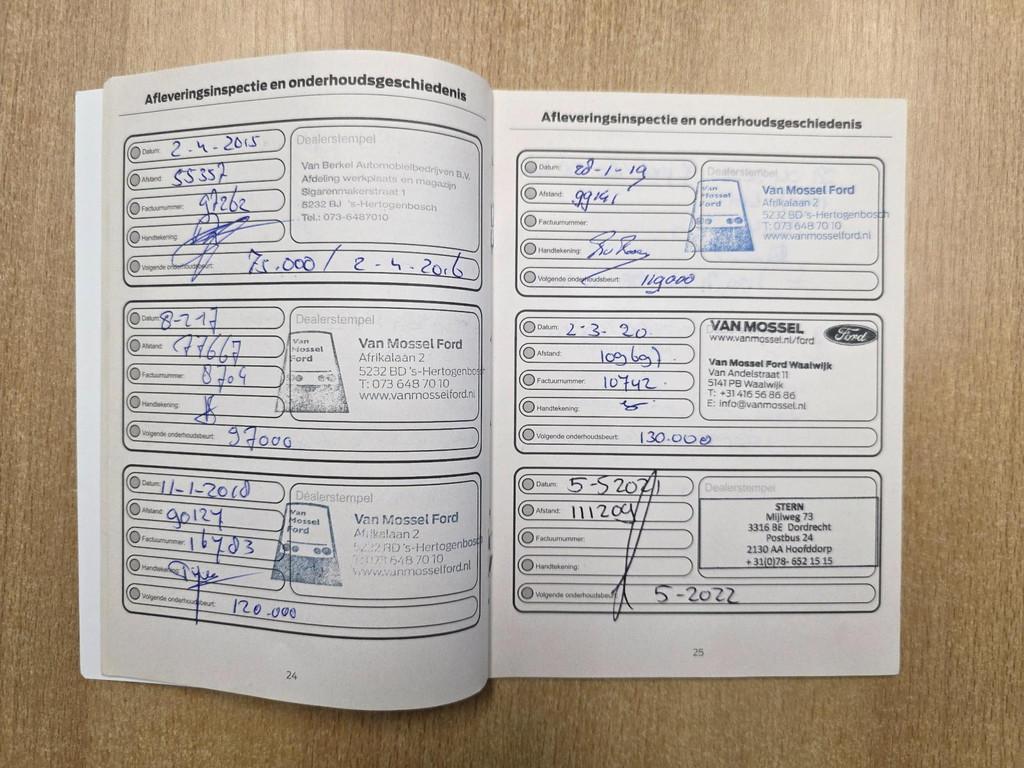 Afleveringsinspectie en onderhoudsgeschiedenis
Datum: 2-4-2015
Afstand: 55357
Factuurnummer: 97262
Handtekening:
Volgende onderhoudsbeurt: 75.000 / 2-4-2016
Dealerstempel
Van Berkel Automobielbedrijven B.V.
Afdeling werkplaats en magazijn
Sigarenmakerstraat 1
5232 BJ 's-Hertogenbosch
Tel.: 073-6487010
Datum: 8-217
Afstand: 77667
Factuurnummer: 8704
Handtekening:
Volgende onderhoudsbeurt: 97000
Dealerstempel
Van
Mossel
Ford
Van Mossel Ford
Afrikalaan 2
5232 BD 's-Hertogenbosch
T: 073 648 70 10
www.vanmosselford.nl
Datum: 11-1-2018
Afstand: 90127
Factuurnummer: 16783
Handtekening:
Volgende onderhoudsbeurt: 120.000
Dealerstempel
Van
Mossel
Ford
Van Mossel Ford
Afrikalaan 2
5232 BD 's-Hertogenbosch
T: 073 648 70 10
www.vanmosselford.nl
24
Afleveringsinspectie en onderhoudsgeschiedenis
Datum: 28-1-19
Afstand: 99141
Factuurnummer:
Handtekening:
Volgende onderhoudsbeurt: 119000
Dealerstempel
Van
Mossel
Ford
Van Mossel Ford
Afrikalaan 2
5232 BD 's-Hertogenbosch
T: 073 648 70 10
www.vanmosselford.nl
Datum: 2-3-20.
Afstand: 109697.
Factuurnummer: 10742.
Handtekening:
Volgende onderhoudsbeurt: 130.000
VAN MOSSEL
www.vanmossel.nl/ford
Ford
Van Mossel Ford Waalwijk
Van Andelstraat 11
5141 PB Waalwijk
T: +31 416 56 86 86
E: info@vanmossel.nl
Datum: 5-5 2021
Afstand: 111209
Factuurnummer:
Handtekening:
Volgende onderhoudsbeurt: 5-2022
Dealerstempel
STERN
Mijlweg 73
3316 BE Dordrecht
Postbus 24
2130 AA Hoofddorp
+31(0)78- 652 15 15
25